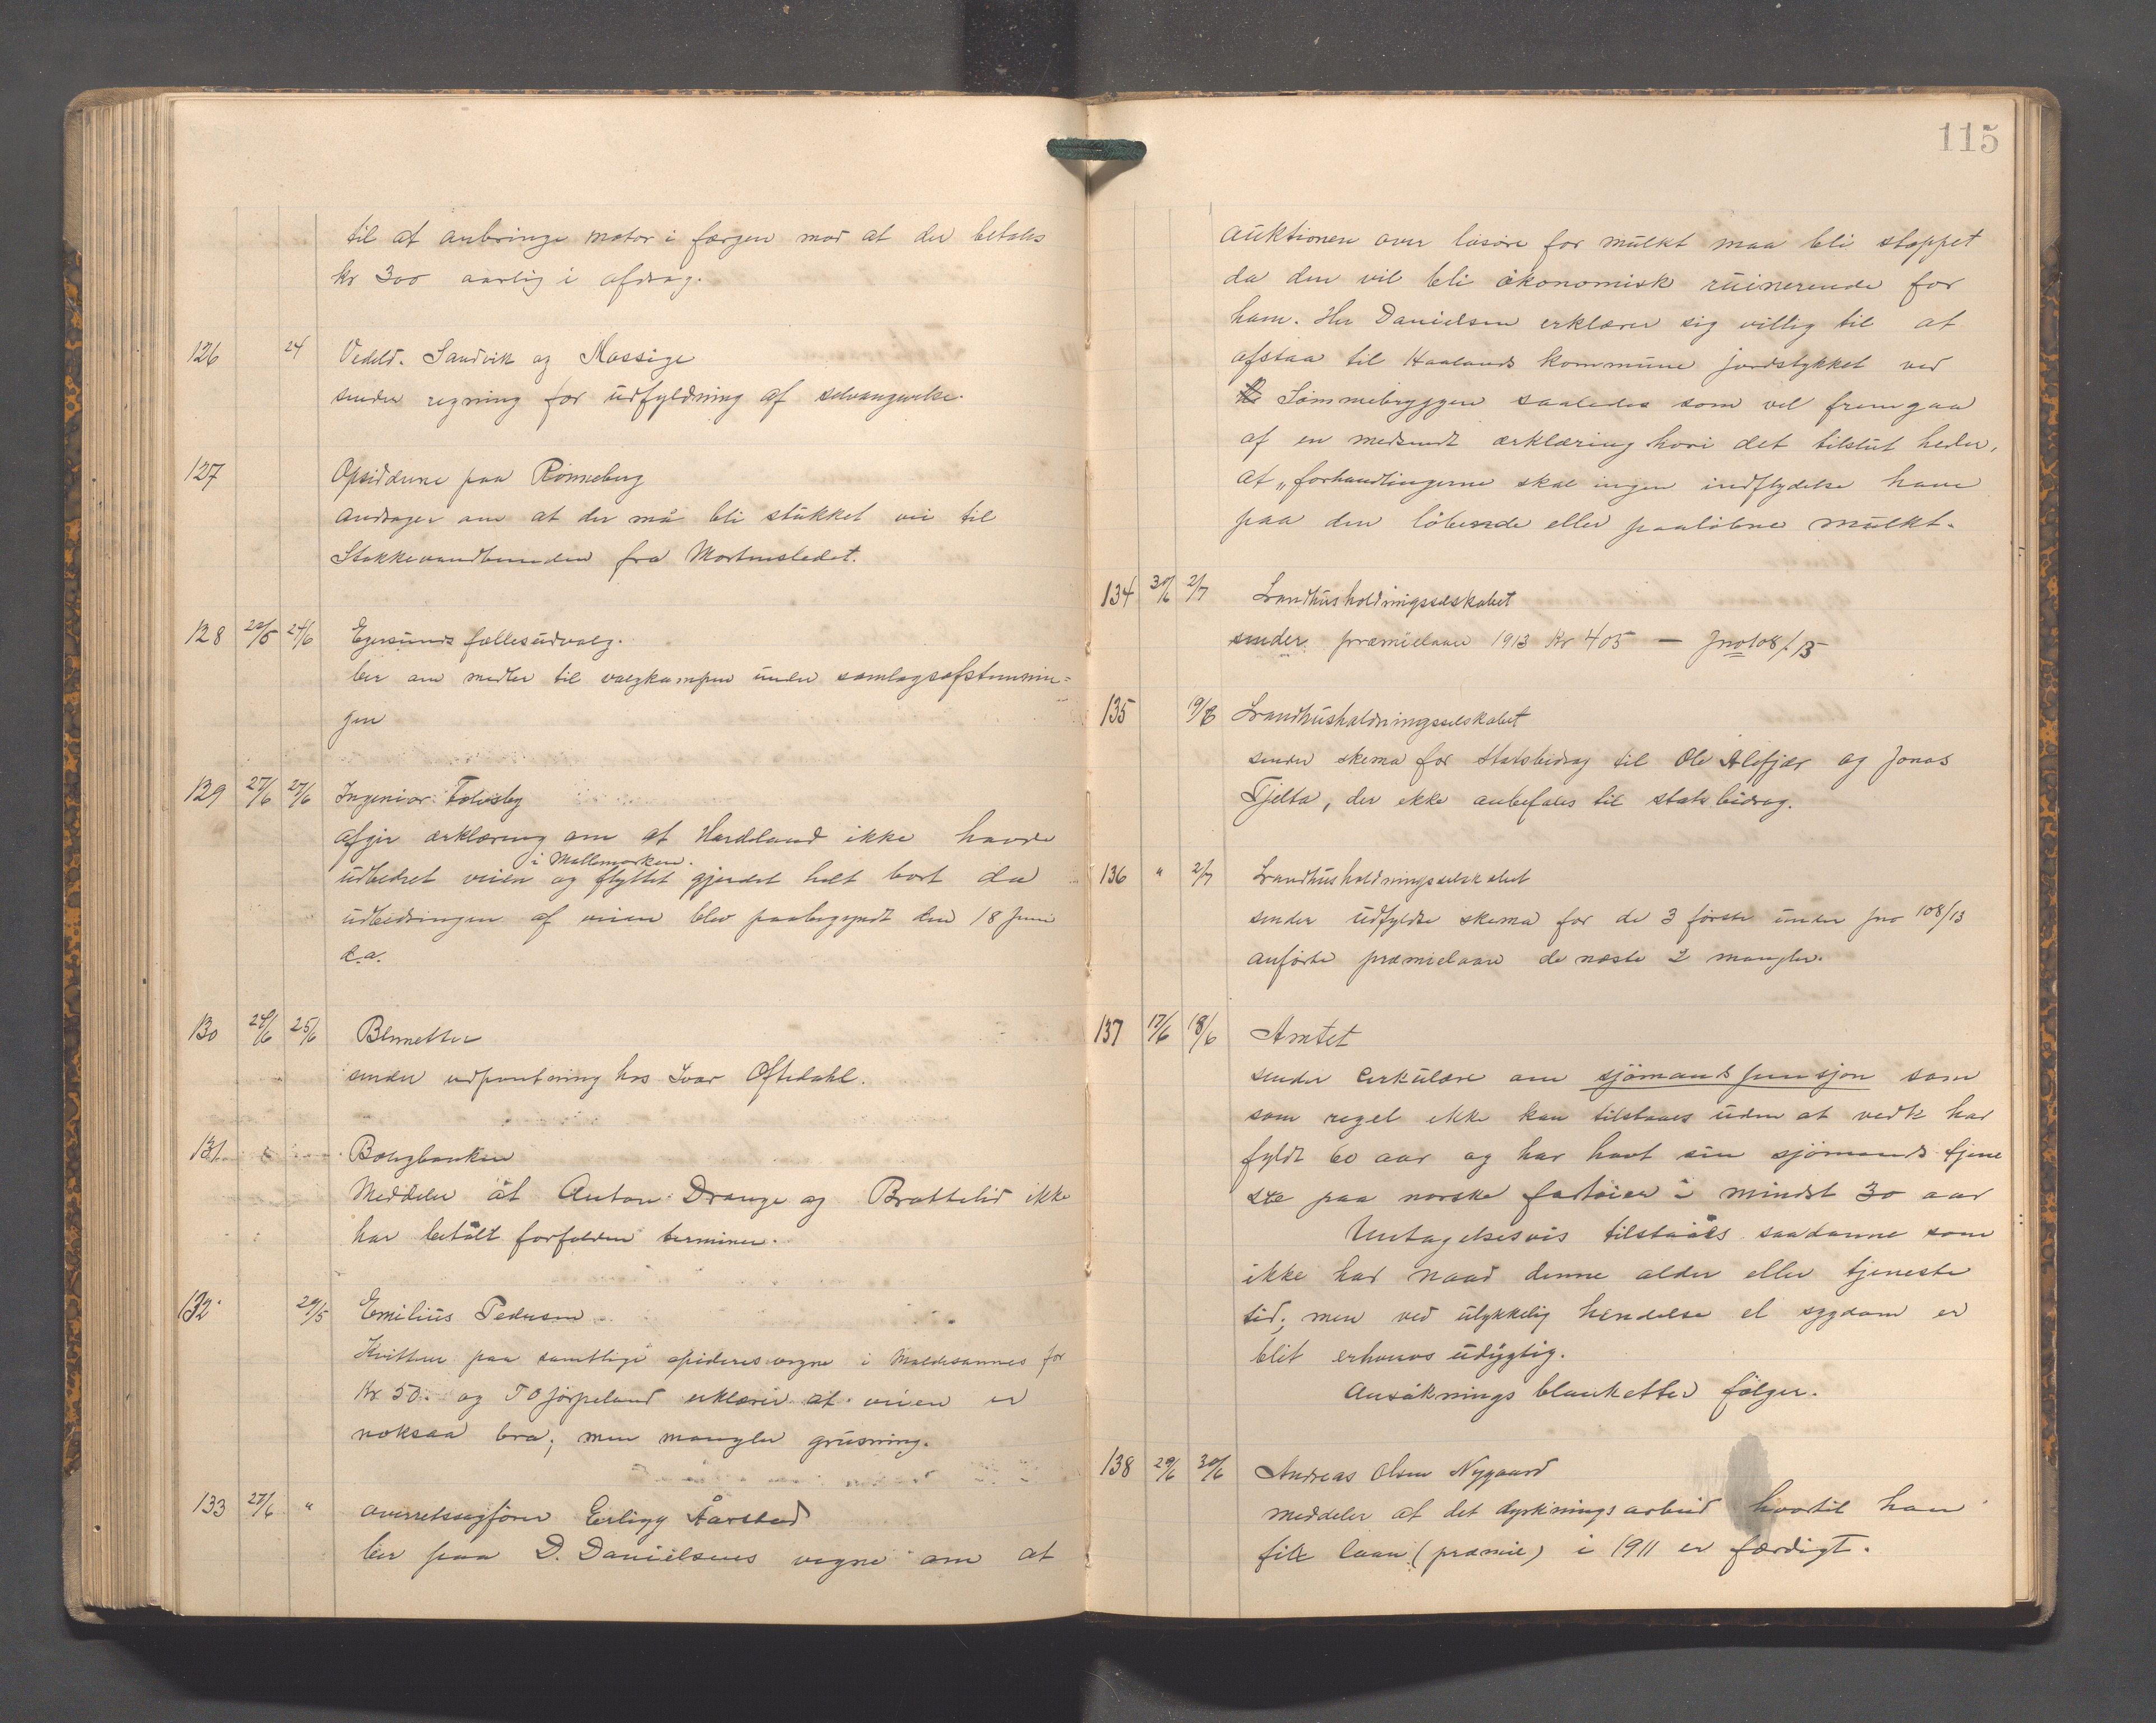 til at anbringe motor i færgen mod at der betales
kr 300 aarlig i afdrag.
126 24 Vedeld. Sandvik og Massige
sender regning for udfyldning af selvangivelse.
127 Opsidderne paa Rønneberg
andrager om at der må bli stukket vei til
Stokkevandbunden fra Mortensledet.
128 22/5 24/6 Egersunds fællesudvalg.
ber om midler til valgkampen under samlagsafstemnin=
gen
129 27/6 27/6 Ingeniør
afgir erklæring om at Hardeland ikke havde
i Mallemarken.
udbedret veien og flyttet gjerdet helt bort da
udbedringen af veien blev paabegyndt den 18 Juni
d.a.
130 24/6 25/6 Bennetter
sender udpantning hos Ivar Oftedahl.
131 Bolugbanken
Meddeler at Anton Drange og Brattelid ikke
har betalt forfalden terminer.
132 29/5 Emilius Pedersen
Kvitterer paa samtlige opsideres vegne i Maldesannes for
Kr 50. og T O Jørpeland erklærer at veien er
noksaa bra; men mangler grusning.
133 27/6 " overretssagfører Erling Aarstad
ber paa D. Danielsens vegne om at
115
auktionen over løsøre for mulkt maa bli stoppet
da den vil bli økonomisk ruinerende for
ham. Hr Danielsen erklærer sig villig til at
afstaa til Haalands kommune jordstykket ved
Sømmebryggen saaledes som vil fremgaa
af en medsendt erklæring hvori det tilslut heder,
at "forhandlingerne skal ingen indflydelse have
paa den løbende eller paaløbne mulkt.
134 30/6 2/7 Landhusholdningsselskabet
sender præmielaan 1913 Kr 405 — Jno 108/13
135 19/6 Landhusholdningsselskabet
sender skema for statsbidrag til Ole Alefjær og Jonas
Tjelta, der ikke anbefales til statsbidrag.
136 " 2/7 Landhusholdningsselskabet
sender udfyldte skema for de 3 første under Jno 108/13
anførte præmielaan de næste 2 mangler.
137 17/6 18/6 Amtet
sender Cirkulære om sjømandspensjon som
som regel ikke kan tilstaaes uden at vedk har
fyldt 60 aar og har havt sin sjømands tjene
ste paa norske fartøier i mindst 30 aar
Untagelsesvis tilstaaes saadanne som
ikke har naad denne alder eller tjeneste
tid; men ved ulykkelig hændelse el sygdom er
blit erhvervs udygtig.
Ansøknings blanketter følger.
138 29/6 30/6 Andreas Olsen Nygaard
meddeler at det dyrkningsarbeid hvortil han
fik laan (præmie) i 1911 er færdigt.